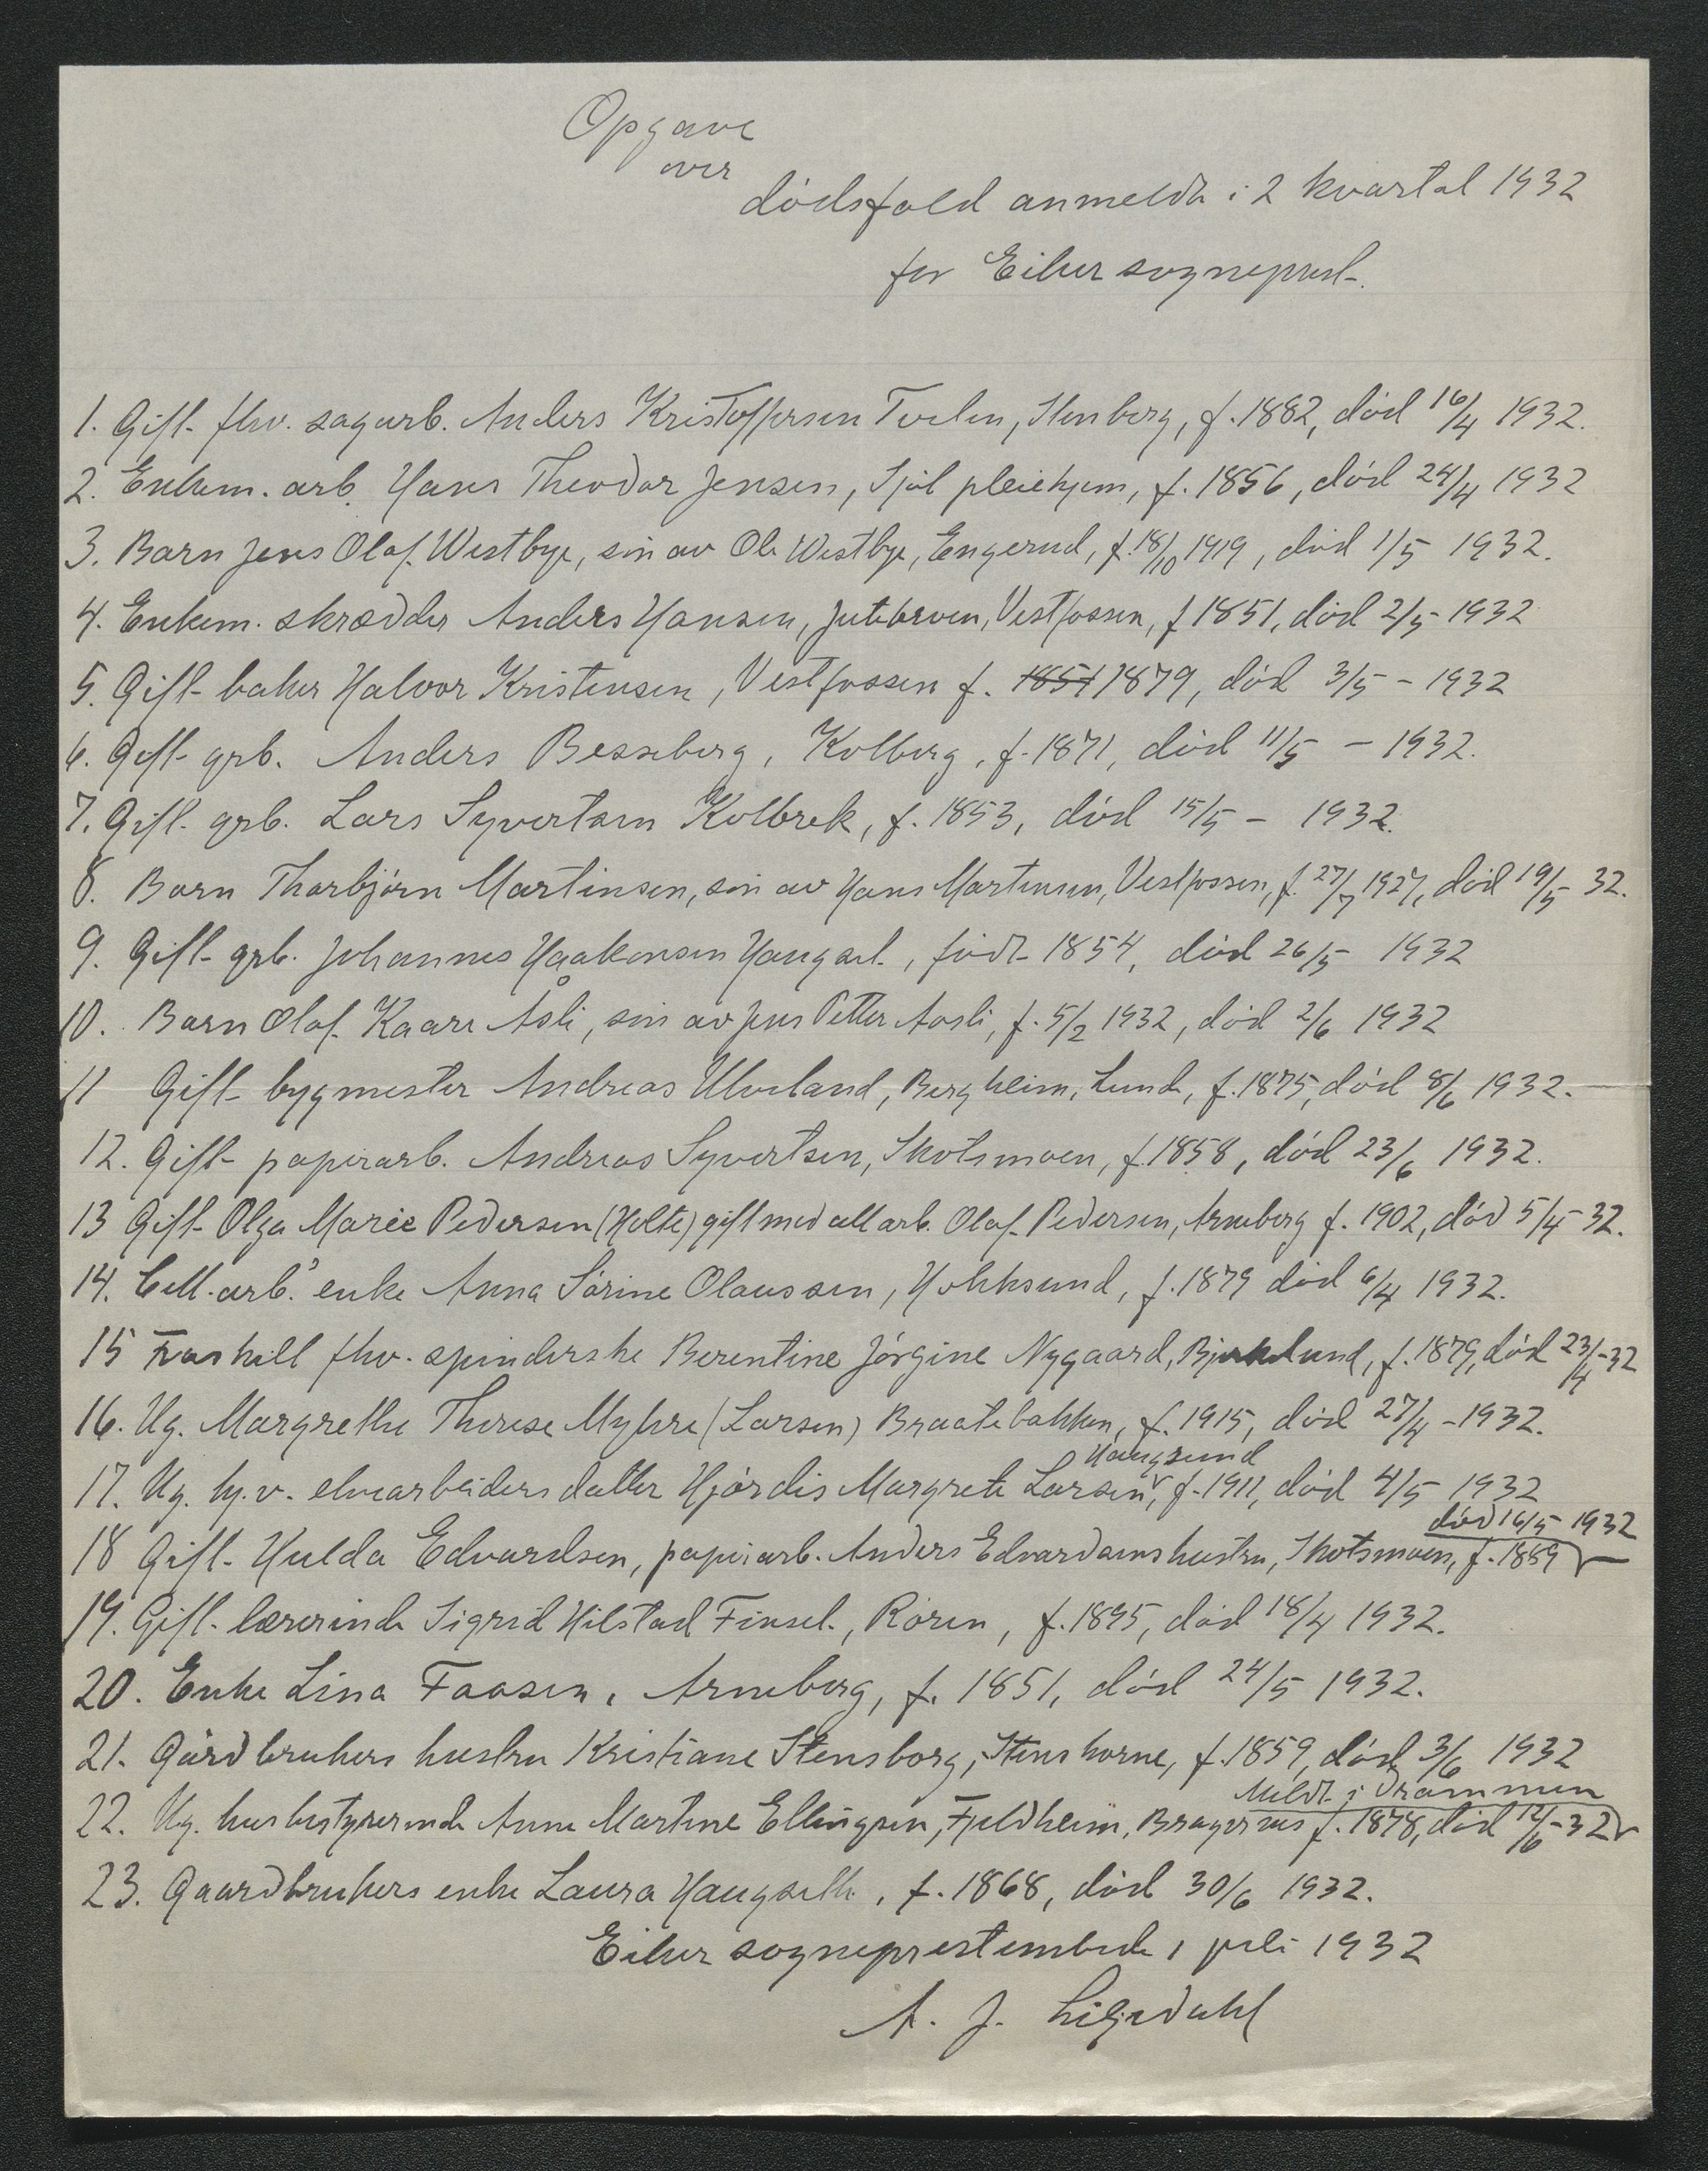 Opgave
over
dødsfald anmeldt i 2 kvartal 1932
for Eiker sogneprest.
1. Gift fhv. sagarb. Anders Kristoffersen Tvelen, Stenberg, f. 1882, død 16/4 1932.
2. Enkem. arb. Hans Theodor Jensen, Sjøl pleiehjem, f. 1856, død 24/4 1932
3. Barn Jens Olaf Westbye, søn av Ole Westbye, Engerud, f. 18/10 1919, død 1/5 1932.
4. Enkem. skrædder Anders Hansen, Jutebroen, Vestfossen, f 1851, død 2/5 - 1932
5. Gift baker Halvor Kristensen, Vestfossen f. 1851 1879, død 3/5 - 1932
6. Gift grb. Anders Besseberg, Kolberg, f. 1871, død 11/5 - 1932.
7. Gift grb. Lars Syvertsen Kolbrek, f. 1853, død 15/5 - 1932.
8. Barn Thorbjørn Martinsen, søn av Hans Martinsen, Vestfossen, f. 27/7 1927, død 19/5 32.
9. Gift grb. Johannes Haakonsen Haugset, født 1854, død 26/5 1932
10. Barn Olaf Kaare Åsli, søn av Jens Petter Aasli, f. 5/2 1932, død 2/6 1932
11 Gift bygmester Andreas Ulveland, Bergheim, Lunde, f. 1875, død 8/6 1932.
12. Gift papirarb. Andreas Syvertsen, Skotsmoen, f. 1858, død 23/6 1932.
13 Gift Olga Marie Pedersen (Holte) gift med cell arb. Olaf Pedersen, Arneberg f. 1902, død 5/4 - 32.
14. Cell. arb.' enke Anna Sørine Olaussen, Hokksund, f. 1879 død 6/4 1932.
15 Fraskill fhv. spinderske Berentine Jørgine Nygaard, Bjørkelund, f. 1879, død 23/4 - 32
16. Ug. Margrethe Therese Myhre (Larsen) Braatebakken, f. 1915, død 27/4 - 1932.
Haugsund
17. Ug. hj.v. elvearbeiders datter Hjørdis Margrete Larsen, f. 1911, død 4/5 1932
død 16/5 1932
18 Gift Hulda Edvardsen, papirarb. Anders Edvardsens hustru, Skotsmoen, f. 1859
19. Gift lærerinde Sigrid Hilstad Finset, Røren, f. 1895, død 18/4 1932.
20. Enke Lina Faasen, Arneberg, f. 1851, død 24/5 1932.
21. Gårdbrukers hustru Kristiane Stensborg, Stenshorne, f. 1859, død 3/6 1932
Meldt i Drammen
22. Ug. husbestyrerinde Anne Martine Ellingsen, Fjeldheim, Bragernes f. 1878, død 12/6 - 32
23. Gaardbrukers enke Laura Haugseth, f. 1868, død 30/6 1932.
Eiker sogneprestembede 1 juli 1932
A. J. Liljedahl